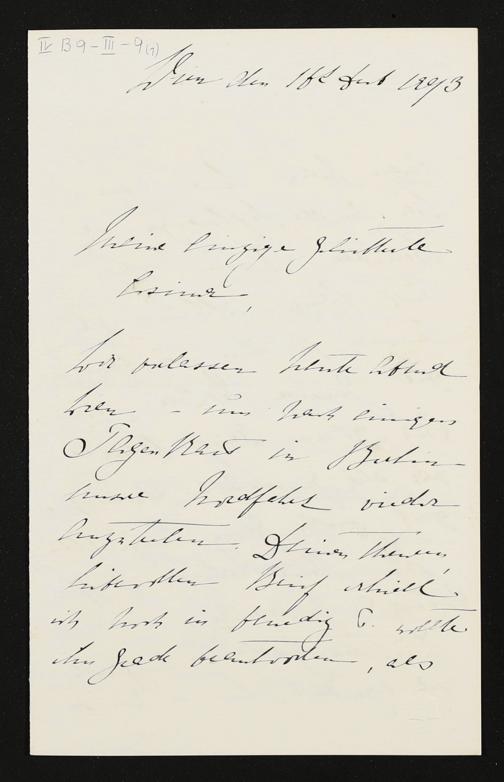 IV B 9 - III - 9 (7)
Wien den 16t Sept 1893
Meine einzige geliebteste
Cosima,
Wir verlassen heute Abend
Wien - um nach einigen
Tagen Rast in Berlin
unsere Nordfahrt wieder
anzutreten. Deinen theuren,
liebevollen Brief erhielt
ich noch in Venedig &. wollte
ihn grade beantworten, als